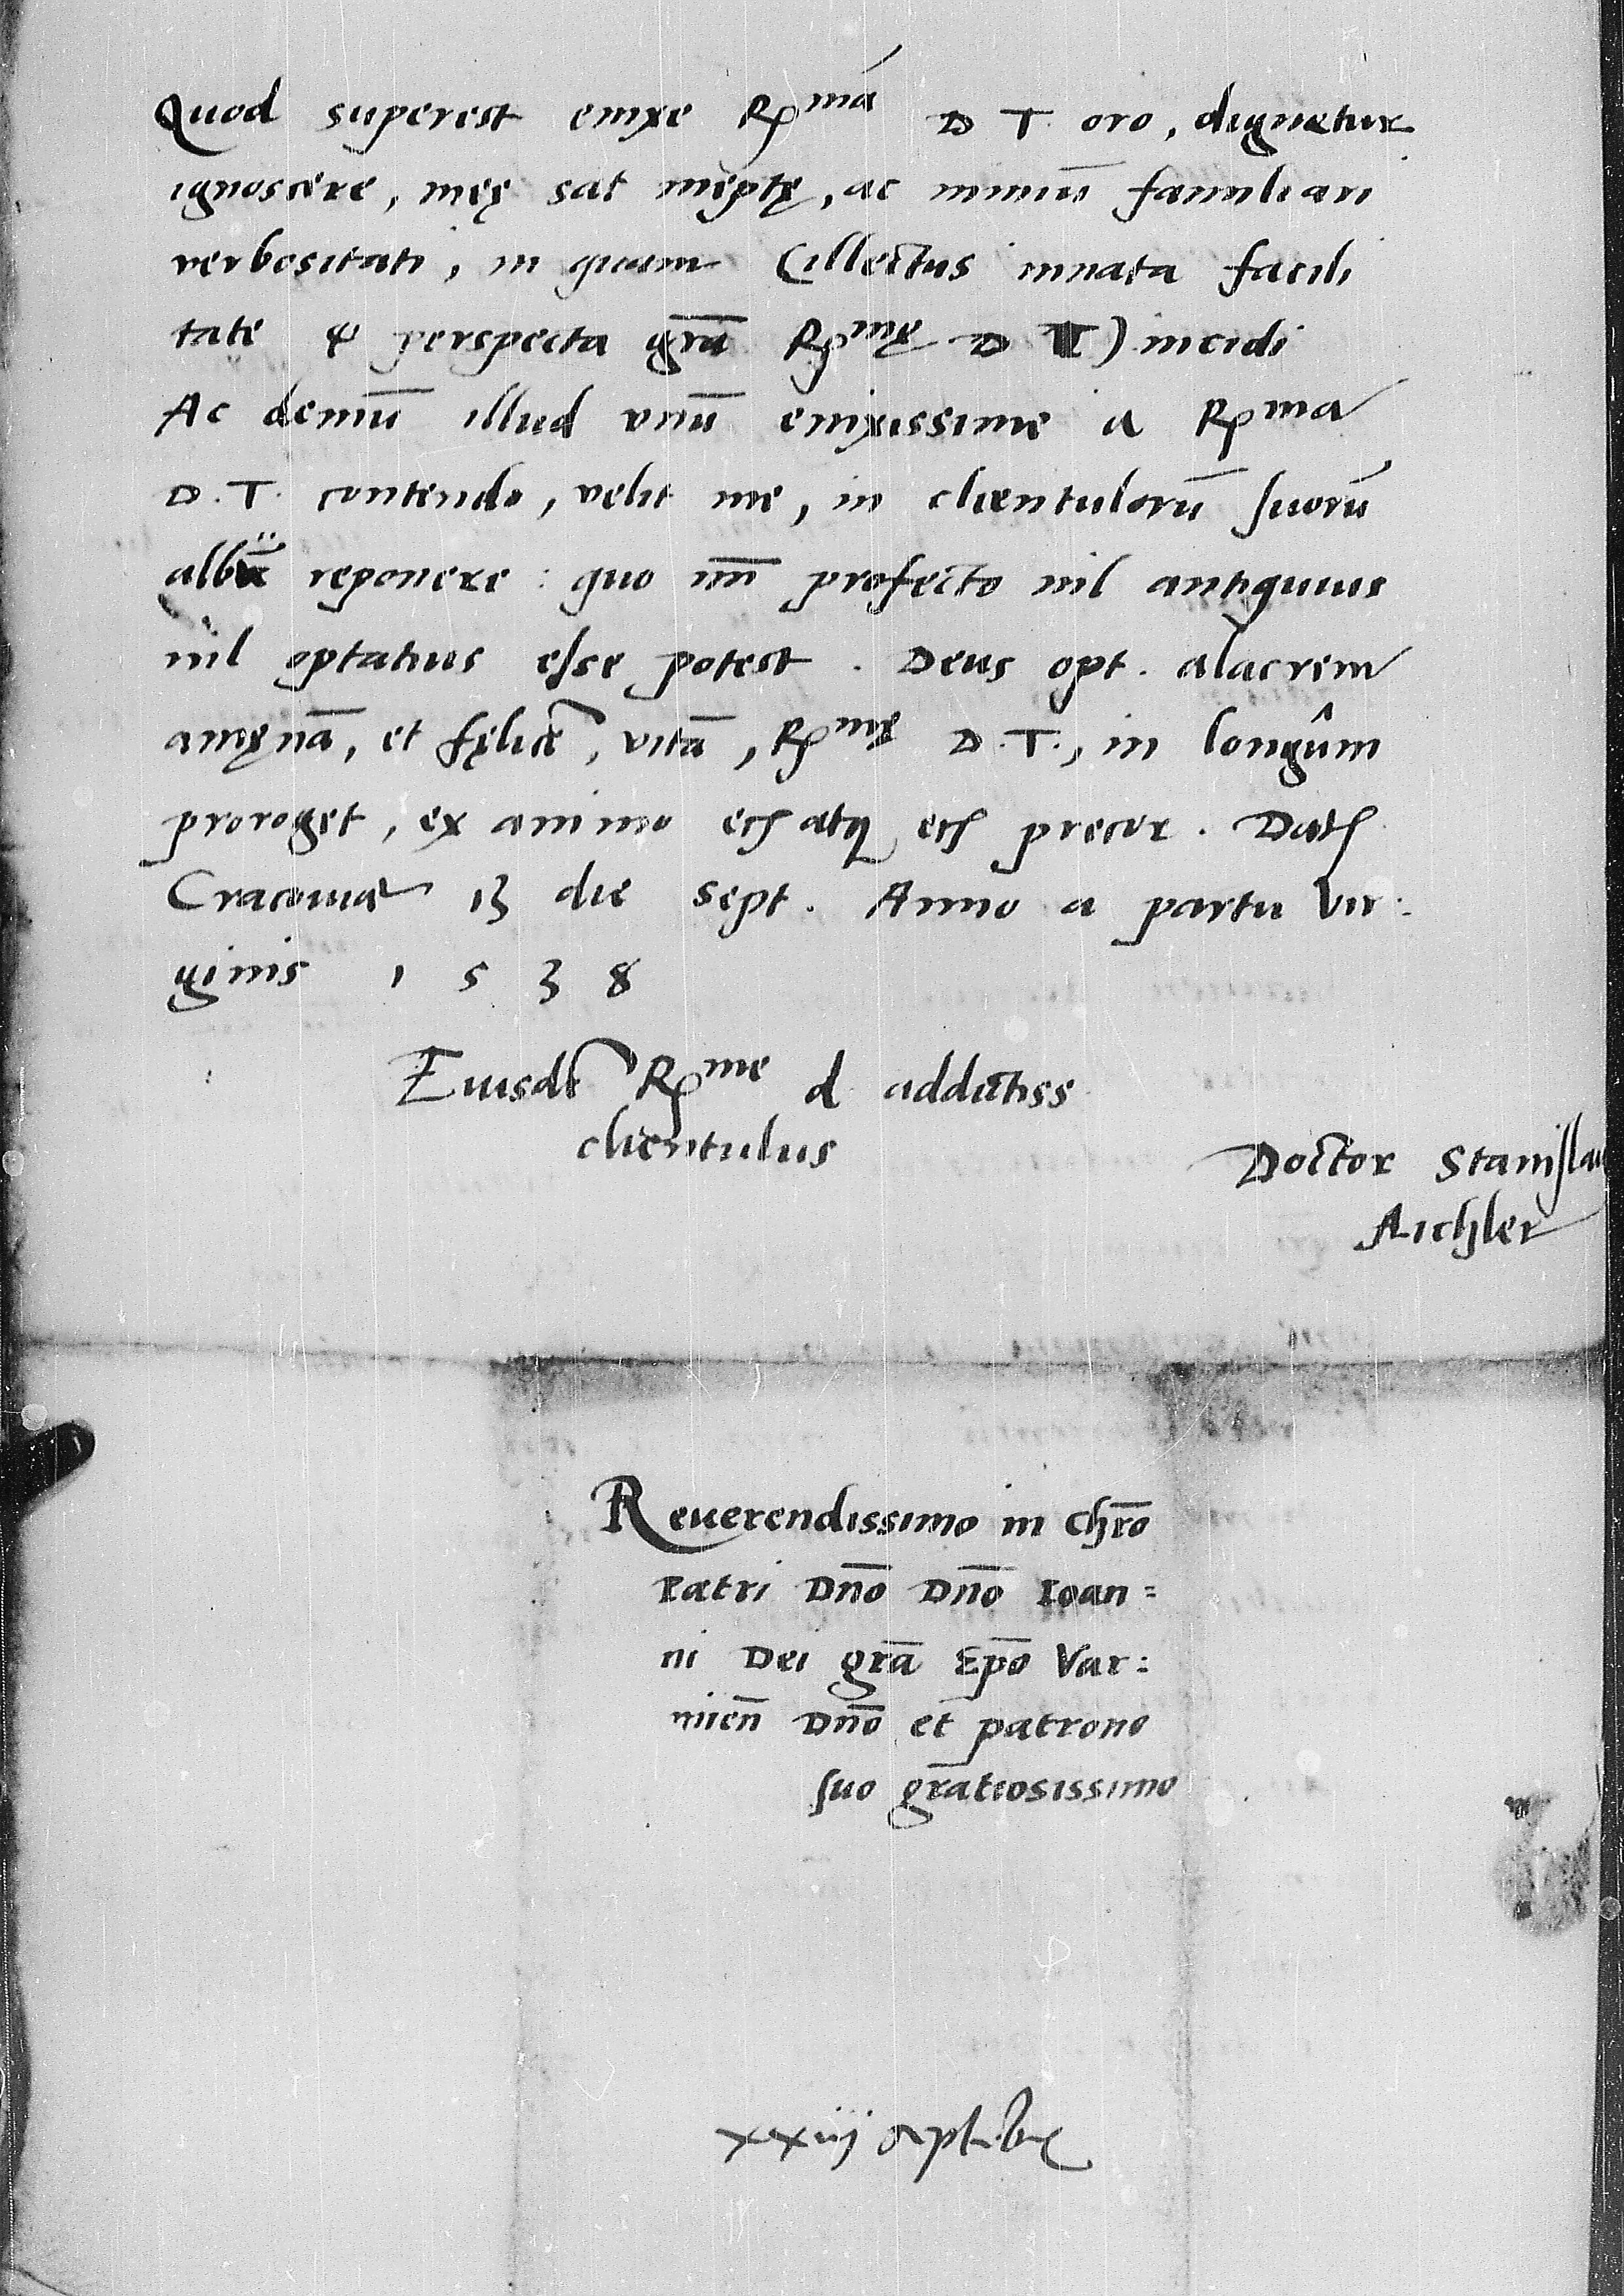 Quod superest enixe R^mā D T oro, dignetur
ignoscere, meę sat ineptę, ac nimiū familiari
verbositati, in quam (illectus innata facili
tate & perspecta gr̄a R^mę D T) incidi
Ac demū illud vnū enixissime a R^ma
D.T. contendo, velit me, in clientulorū suorū
albū reponere: quo m̄ profecto nil antiquius
nil optatius esse potest. Deus opt. alacrem
amęnā, et fęlicē, vitā, R^mę D.T., in longûm
proroget, ex animo eciam atq eciam precor. Dat
Cracouiae 13 die sept. Anno a partu Vir:
ginis 1538
Eiusdē R^me d addictiss
clientulus
Doctor Stanislau
Aichler
Reuerendissimo in Chr̄o
Patri Dn̄o Dn̄o Ioan=
ni Dei gr̄a Ep̄o Var:
mien̄ Dn̄o et patrono
suo gratiosissimo
xxiij